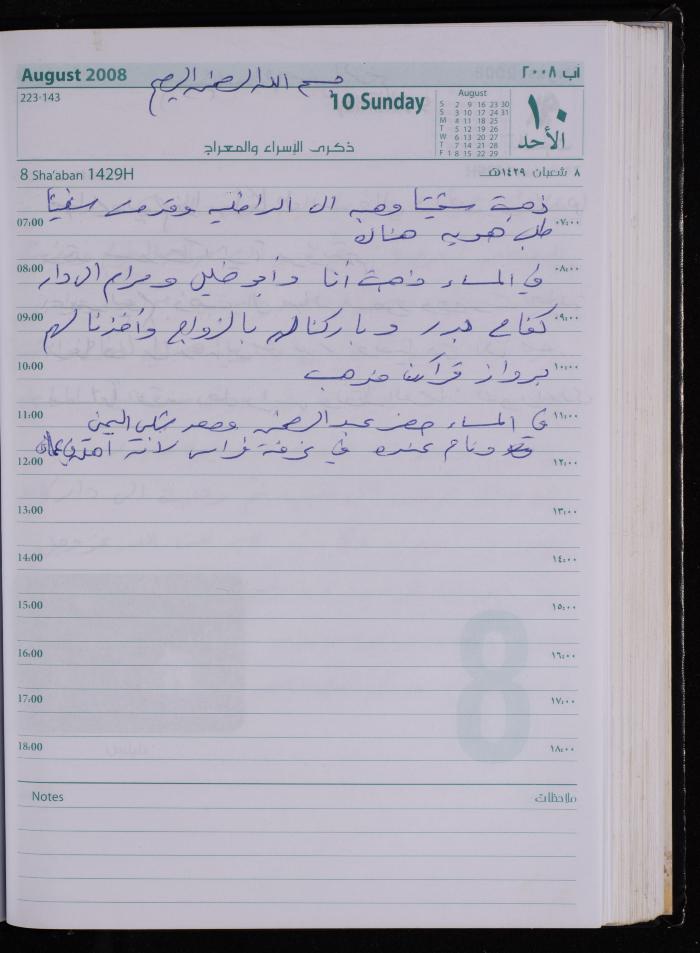 August 2008
آب ٢٠٠٨
بسم الله الرحمن الرحيم
223-143
10 Sunday
August
S 2 9 16 23 30
S 3 10 17 24 31
M 4 11 18 25
T 5 12 19 26
W 6 13 20 27
T 7 14 21 28
F 1 8 15 22 29
١٠
الأحد
ذكرى الإسراء والمعراج
8 Sha'aban 1429H
٨ شعبان ١٤٢٩هـ
ذهبت الى الداخلية وقدمت
07:00 طلب هوية ٠٧:٠٠
08:00 في المساء ذهبت أنا وأبو خليل ومرام الى دار ٠٨:٠٠
09:00 كفاح بدر وباركنا لهم بالزواج وأخذنا لهم ٠٩:٠٠
10:00 برواز قرآن مذهب ١٠:٠٠
11:00 في المساء حضر عبد الرحمن ١١:٠٠
ونام عنده في غرفة فراس لانة
12:00 ١٢:٠٠
13:00 ١٣:٠٠
14:00 ١٤:٠٠
15:00 ١٥:٠٠
16:00 ١٦:٠٠
17:00 ١٧:٠٠
18:00 ١٨:٠٠
8
Notes
ملاحظات